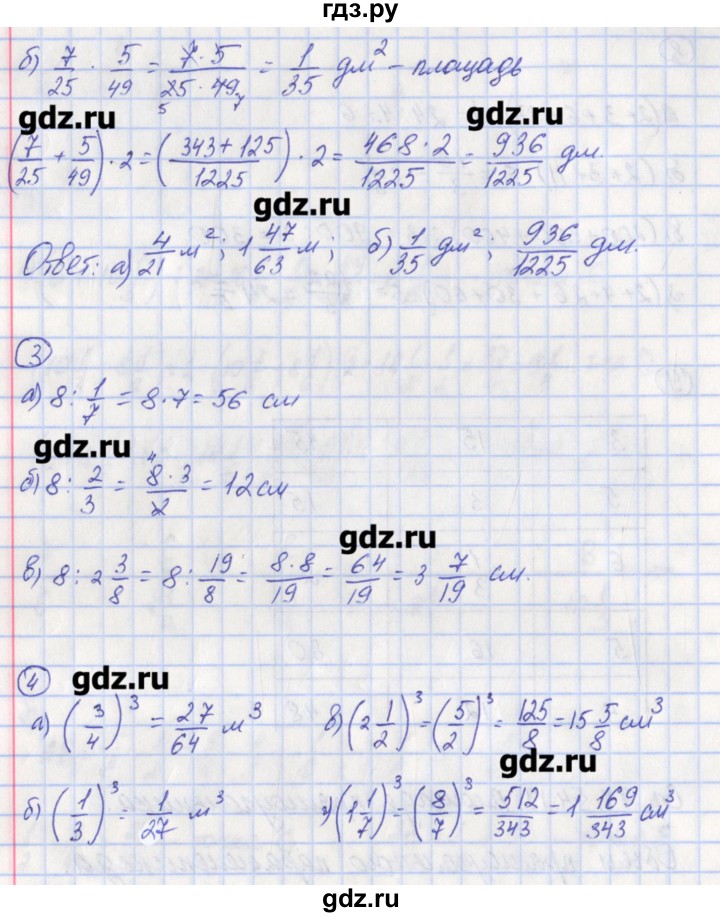 гдз.ру
б) 7/25 · 5/49 = 7·5/25·49 = 1/35 дм² – площадь
5 7
gdz.ru gdz.ru
(7/25 + 5/49) · 2 = (343+125/1225) · 2 = 468·2/1225 = 936/1225 дм.
gdz.ru
Ответ: а) 4/21 м²; 1 47/63 м; б) 1/35 дм²; 936/1225 дм.
3
а) 8 : 1/7 = 8·7 = 56 см
gdz.ru
4
б) 8 : 2/3 = 8·3/2 = 12 см
gdz.ru
в) 8 : 2 3/8 = 8 : 19/8 = 8·8/19 = 64/19 = 3 7/19 см.
4 gdz.ru
а) (3/4)³ = 27/64 м³ в) (2 1/2)³ = (5/2)³ = 125/8 = 15 5/8 см³
gdz.ru
б) (1/3)³ = 1/27 м³ г) (1 1/7)³ = (8/7)³ = 512/343 = 1 169/343 см³
gdz.ru